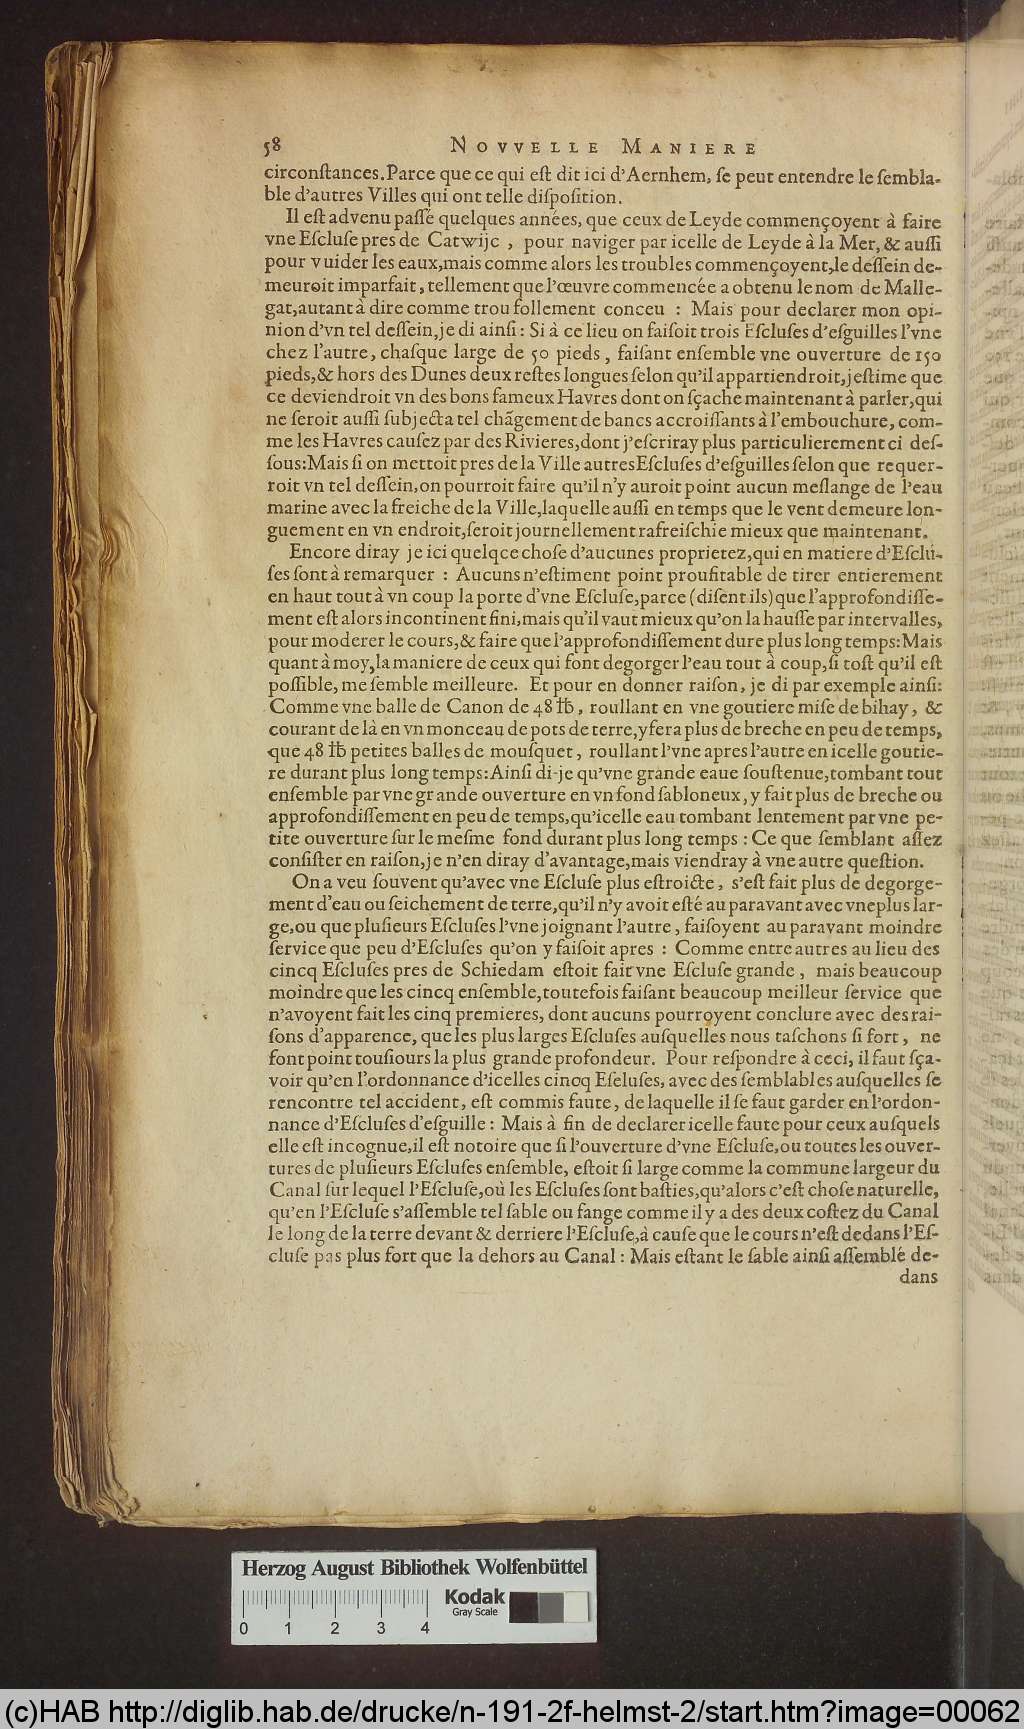 58 NOVVELLE MANIERE
circonſtances. Parce que ce qui eſt dit ici d'Aernhem, ſe peut entendre le ſembla-
ble d'autres Villes qui ont telle diſpoſition.
Il eſt advenu paſſé quelques années, que ceux de Leyde commençoyent à faire
vne Eſcluſe pres de Catwijc, pour naviger par icelle de Leyde à la Mer, & auſſi
pour vuider les eaux, mais comme alors les troubles commençoyent, le deſſein de-
meuroit imparfait, tellement que l'œuvre commencée a obtenu le nom de Malle-
gat, autant à dire comme trou follement conceu : Mais pour declarer mon opi-
nion d'vn tel deſſein, je di ainſi: Si à ce lieu on faiſoit trois Eſcluſes d'eſguilles l'vne
chez l'autre, chaſque large de 50 pieds, faiſant enſemble vne ouverture de 150
pieds, & hors des Dunes deux reſtes longues ſelon qu'il appartiendroit, j'eſtime que
ce deviendroit vn des bons fameux Havres dont on ſçache maintenant à parler, qui
ne ſeroit auſſi ſubjecta tel chãgement de bancs accroiſſants à l'embouchure, com-
me les Havres cauſez par des Rivieres, dont j'eſcriray plus particulierement ci deſ-
ſous: Mais ſi on mettoit pres de la Ville autres Eſcluſes d'eſguilles ſelon que requer-
roit vn tel deſſein, on pourroit faire qu'il n'y auroit point aucun meſlange de l'eau
marine avec la freiche de la Ville, laquelle auſſi en temps que le vent demeure lon-
guement en vn endroit, ſeroit journellement rafreiſchie mieux que maintenant.
Encore diray je ici quelqce choſe d'aucunes proprietez, qui en matiere d'Eſclu-
ſes ſont à remarquer : Aucuns n'eſtiment point proufitable de tirer entierement
en haut tout à vn coup la porte d'vne Eſcluſe, parce (diſent ils) que l'approfondiſſe-
ment eſt alors incontinent fini, mais qu'il vaut mieux qu'on la hauſſe par intervalles,
pour moderer le cours, & faire que l'approfondiſſement dure plus long temps: Mais
quant à moy, la maniere de ceux qui font degorger l'eau tout à coup, ſi toſt qu'il eſt
poſſible, me ſemble meilleure. Et pour en donner raiſon, je di par exemple ainſi:
Comme vne balle de Canon de 48 ℔, roullant en vne goutiere miſe de bihay, &
courant de là en vn monceau de pots de terre, y fera plus de breche en peu de temps,
que 48 ℔ petites balles de mouſquet, roullant l'vne apres l'autre en icelle goutie-
re durant plus long temps: Ainſi di-je qu'vne grande eaue ſouſtenue, tombant tout
enſemble par vne grande ouverture en vn fond ſabloneux, y fait plus de breche ou
approfondiſſement en peu de temps, qu'icelle eau tombant lentement par vne pe-
tite ouverture ſur le meſme fond durant plus long temps : Ce que ſemblant aſſez
conſiſter en raiſon, je n'en diray d'avantage, mais viendray à vne autre queſtion.
On a veu ſouvent qu'avec vne Eſcluſe plus eſtroicte, s'eſt fait plus de degorge-
ment d'eau ou ſeichement de terre, qu'il n'y avoit eſté au paravant avec vne plus lar-
ge, ou que pluſieurs Eſcluſes l'vne joignant l'autre, faiſoyent au paravant moindre
ſervice que peu d'Eſcluſes qu'on y faiſoit apres : Comme entre autres au lieu des
cincq Eſcluſes pres de Schiedam eſtoit fait vne Eſcluſe grande, mais beaucoup
moindre que les cincq enſemble, toutefois faiſant beaucoup meilleur ſervice que
n'avoyent fait les cinq premieres, dont aucuns pourroyent conclure avec des rai-
ſons d'apparence, que les plus larges Eſcluſes auſquelles nous taſchons ſi fort, ne
font point touſiours la plus grande profondeur. Pour reſpondre à ceci, il faut ſça-
voir qu'en l'ordonnance d'icelles cincq Eſcluſes, avec des ſemblables auſquelles ſe
rencontre tel accident, eſt commis faute, de laquelle il ſe faut garder en l'ordon-
nance d'Eſcluſes d'eſguille : Mais à fin de declarer icelle faute pour ceux auſquels
elle eſt incognue, il eſt notoire que ſi l'ouverture d'vne Eſcluſe, ou toutes les ouver-
tures de pluſieurs Eſcluſes enſemble, eſtoit ſi large comme la commune largeur du
Canal ſur lequel l'Eſcluſe, où les Eſcluſes ſont baſties, qu'alors c'eſt choſe naturelle,
qu'en l'Eſcluſe s'aſſemble tel ſable ou fange comme il y a des deux coſtez du Canal
le long de la terre devant & derriere l'Eſcluſe, à cauſe que le cours n'eſt dedans l'Eſ-
cluſe pas plus fort que la dehors au Canal : Mais eſtant le ſable ainſi aſſemblé de-
dans
Herzog August Bibliothek Wolfenbüttel
Kodak
Gray Scale
0 1 2 3 4
(c)HAB http://diglib.hab.de/drucke/n-191-2f-helmst-2/start.htm?image=00062